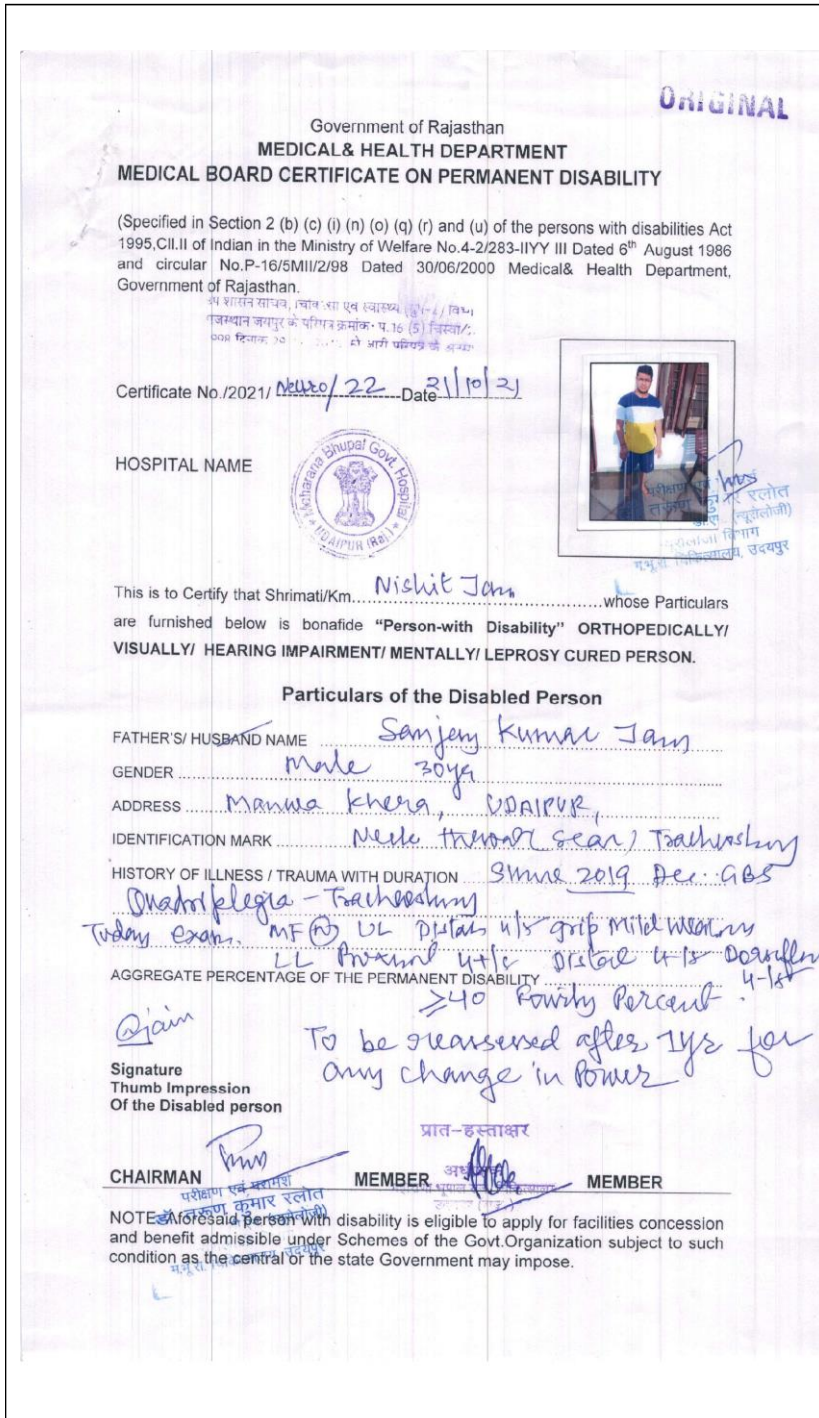 ORIGINAL
Government of Rajasthan
MEDICAL& HEALTH DEPARTMENT
MEDICAL BOARD CERTIFICATE ON PERMANENT DISABILITY
(Specified in Section 2 (b) (c) (i) (n) (o) (q) (r) and (u) of the persons with disabilities Act
1995,CII.II of Indian in the Ministry of Welfare No.4-2/283-IIYY III Dated 6th August 1986
and circular No.P-16/5MII/2/98 Dated 30/06/2000 Medical& Health Department,
Government of Rajasthan.
शासन सचिव, एवं स्वास्थ्य
जयपुर के परिपत्र क्रमांक प.16 (5)
Certificate No./2021/ Neuro/22 Date 21/10/21
HOSPITAL NAME
Maharana Bhupal Govt. Hospital
UDAIPUR (Raj.)
परीक्षण एवं
तरूण कुमार रलोत
(न्यूरोलोजी)
विभाग
चिकित्सालय, उदयपुर
This is to Certify that Shrimati/Km. Nishit Jain whose Particulars
are furnished below is bonafide “Person-with Disability” ORTHOPEDICALLY/
VISUALLY/ HEARING IMPAIRMENT/ MENTALLY/ LEPROSY CURED PERSON.
Particulars of the Disabled Person
FATHER'S/ HUSBAND NAME Sanjay Kumar Jain
GENDER Male 30yr
ADDRESS Manwa Khera, UDAIPUR,
IDENTIFICATION MARK Neck scar) Tracheostomy
HISTORY OF ILLNESS / TRAUMA WITH DURATION Since 2019 Dec. GBS
Quadriplegia - Tracheostomy
Today exam. MF (N) UL Distal 4/5 grip Mild
LL Proximal 4+/5 Distal 4-/5
AGGREGATE PERCENTAGE OF THE PERMANENT DISABILITY 4-/5
≥40 Fourty Percent.
Jain
To be reassessed after 1yr for
any change in Power
Signature
Thumb Impression
Of the Disabled person
प्रति-हस्ताक्षर
CHAIRMAN MEMBER MEMBER
परीक्षण एवं परामर्श
डॉ. तरूण कुमार रलोत
NOTE: Aforesaid person with disability is eligible to apply for facilities concession
and benefit admissible under Schemes of the Govt.Organization subject to such
condition as the central or the state Government may impose.